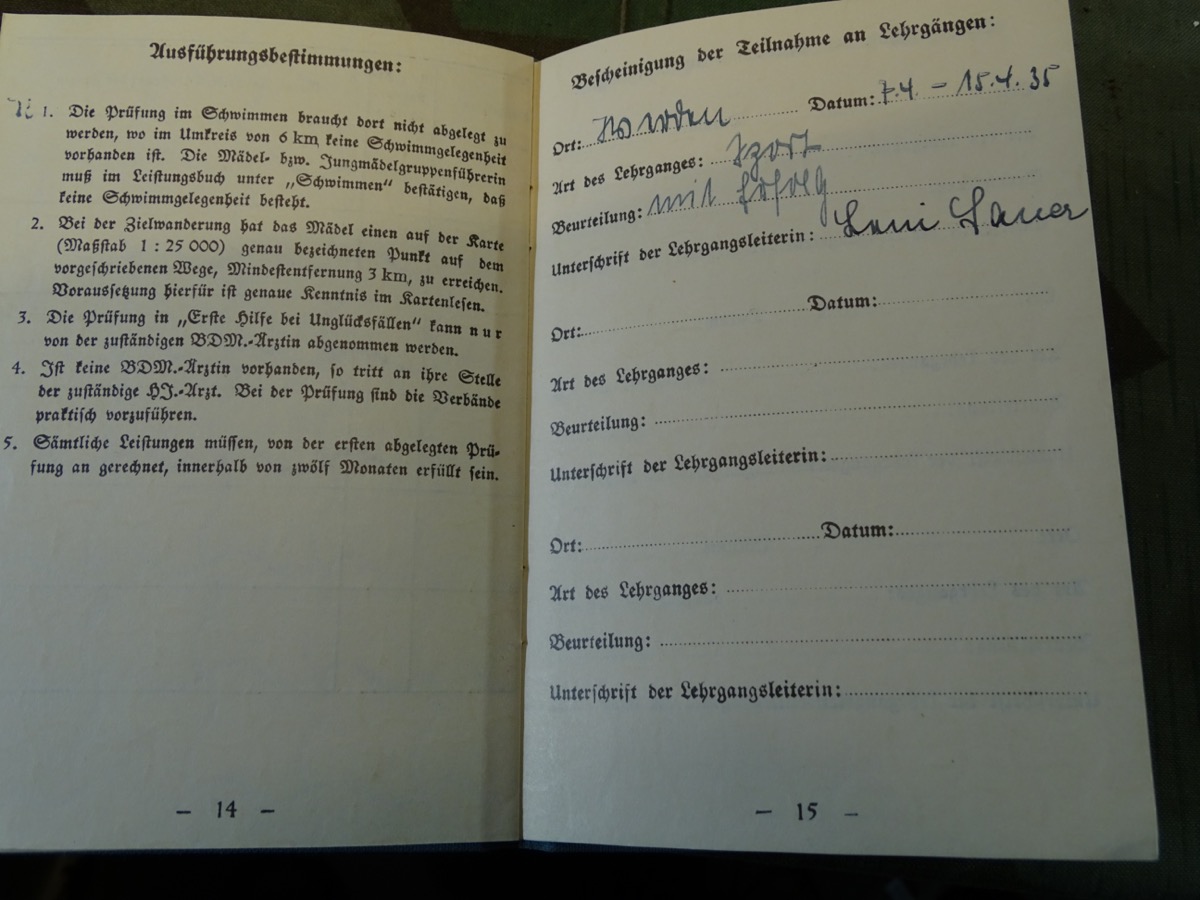 Ausführungsbestimmungen:
1. Die Prüfung im Schwimmen braucht dort nicht abgelegt zu
werden, wo im Umkreis von 6 km keine Schwimmgelegenheit
vorhanden ist. Die Mädel- bzw. Jungmädelgruppenführerin
muß im Leistungsbuch unter „Schwimmen“ bestätigen, daß
keine Schwimmgelegenheit besteht.
2. Bei der Zielwanderung hat das Mädel einen auf der Karte
(Maßstab 1 : 25 000) genau bezeichneten Punkt auf dem
vorgeschriebenen Wege, Mindestentfernung 3 km, zu erreichen.
Voraussetzung hierfür ist genaue Kenntnis im Kartenlesen.
3. Die Prüfung in „Erste Hilfe bei Unglücksfällen“ kann nur
von der zuständigen BDM.-Ärztin abgenommen werden.
4. Ist keine BDM.-Ärztin vorhanden, so tritt an ihre Stelle
der zuständige HJ.-Arzt. Bei der Prüfung sind die Verbände
praktisch vorzuführen.
5. Sämtliche Leistungen müssen, von der ersten abgelegten Prü-
fung an gerechnet, innerhalb von zwölf Monaten erfüllt sein.
– 14 –
Bescheinigung der Teilnahme an Lehrgängen:
Ort: Datum: 7.4 – 15.4.35
Art des Lehrganges: Sport
Beurteilung: mit Erfolg
Unterschrift der Lehrgangsleiterin: Leni Lauer
Ort: Datum:
Art des Lehrganges:
Beurteilung:
Unterschrift der Lehrgangsleiterin:
Ort: Datum:
Art des Lehrganges:
Beurteilung:
Unterschrift der Lehrgangsleiterin:
– 15 –